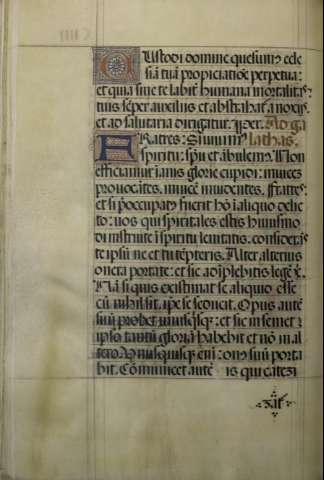 Custodi domine quesumus ecle
siā tuā propiciatiōe perpetua:
et quia sine te labit̄ humana mortalitas
tuis semper auxiliis et abstrahat̄ a noxiis.
et ad salutaria dirigatur. p̄er. Ad ga
Fratres: Si uiuim⁹ lathas.
spiritu: spū et ābulem⁹. Non
efficiamur inanis glorie cupidi: inuicē
prouocātes, inuicē inuidentes. fratres:
et si p̄occupat⁹ fuerit hō ī aliquo delic
to: uos qui spiritales estis huiusmo
di instruite ī spiritu lenitatis. considerās
te ipsū ne et tu tēpteris. Alter alterius
onera portate: et sic adīplebitis legē x̄.
Nā si quis existimat se aliquid esse
cū nihil sit, ipse se seducit. Opus autē
suū probet unusq̄sq̄: et sic in semet
ipso tantū gloriā habebit et nō in al
tero. Unusquisque eni: onus suū porta
bit. Cōmunicet autē is qui catezi
zat̄